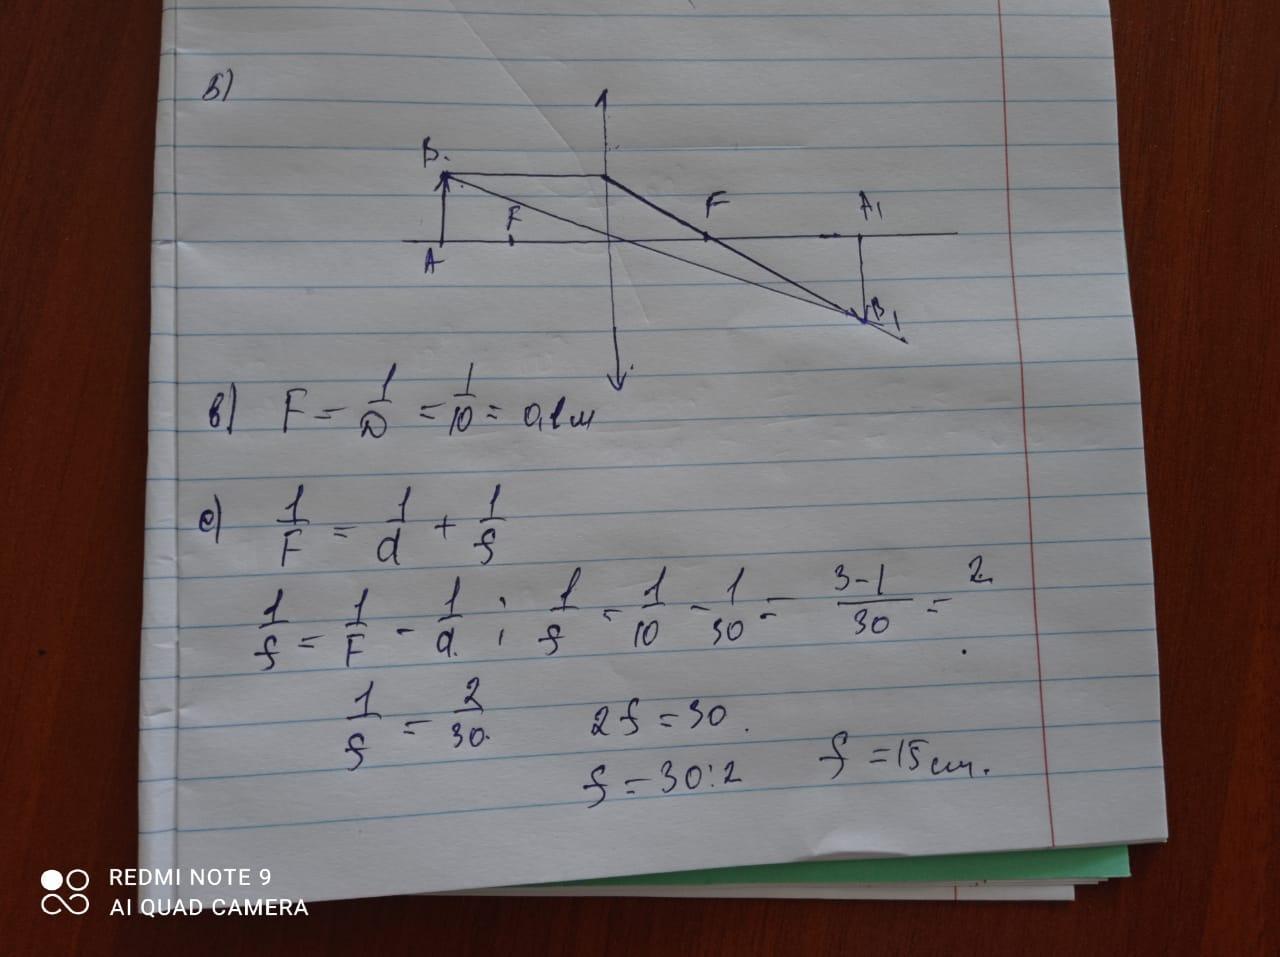 б)
B.
F
F
A1
A
B1
в) F = 1/D = 1/10 = 0,1м
с) 1/F = 1/d + 1/f
1/f = 1/F - 1/d. ; 1/f = 1/10 - 1/30 = 3-1/30 = 2
1/f = 2/30. 2f = 30.
f = 30:2 f = 15 см.
REDMI NOTE 9
AI QUAD CAMERA